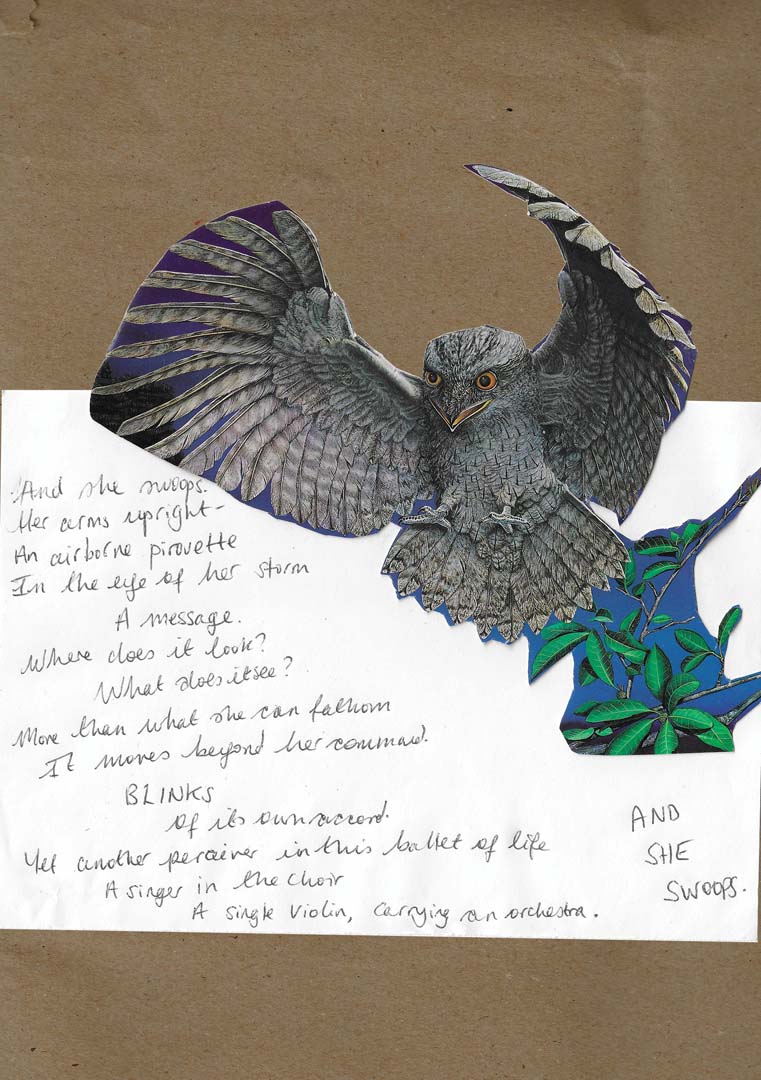 And she swoops.
Her arms upright-
An airborne pirouette
In the eye of her storm
A message.
Where does it look?
What does it see?
More than what she can fathom
It moves beyond her command.
BLINKS
of its own accord.
Yet another perceiver in this ballet of life
A singer in the choir
A single violin, carrying an orchestra.
AND
SHE
SWOOPS.